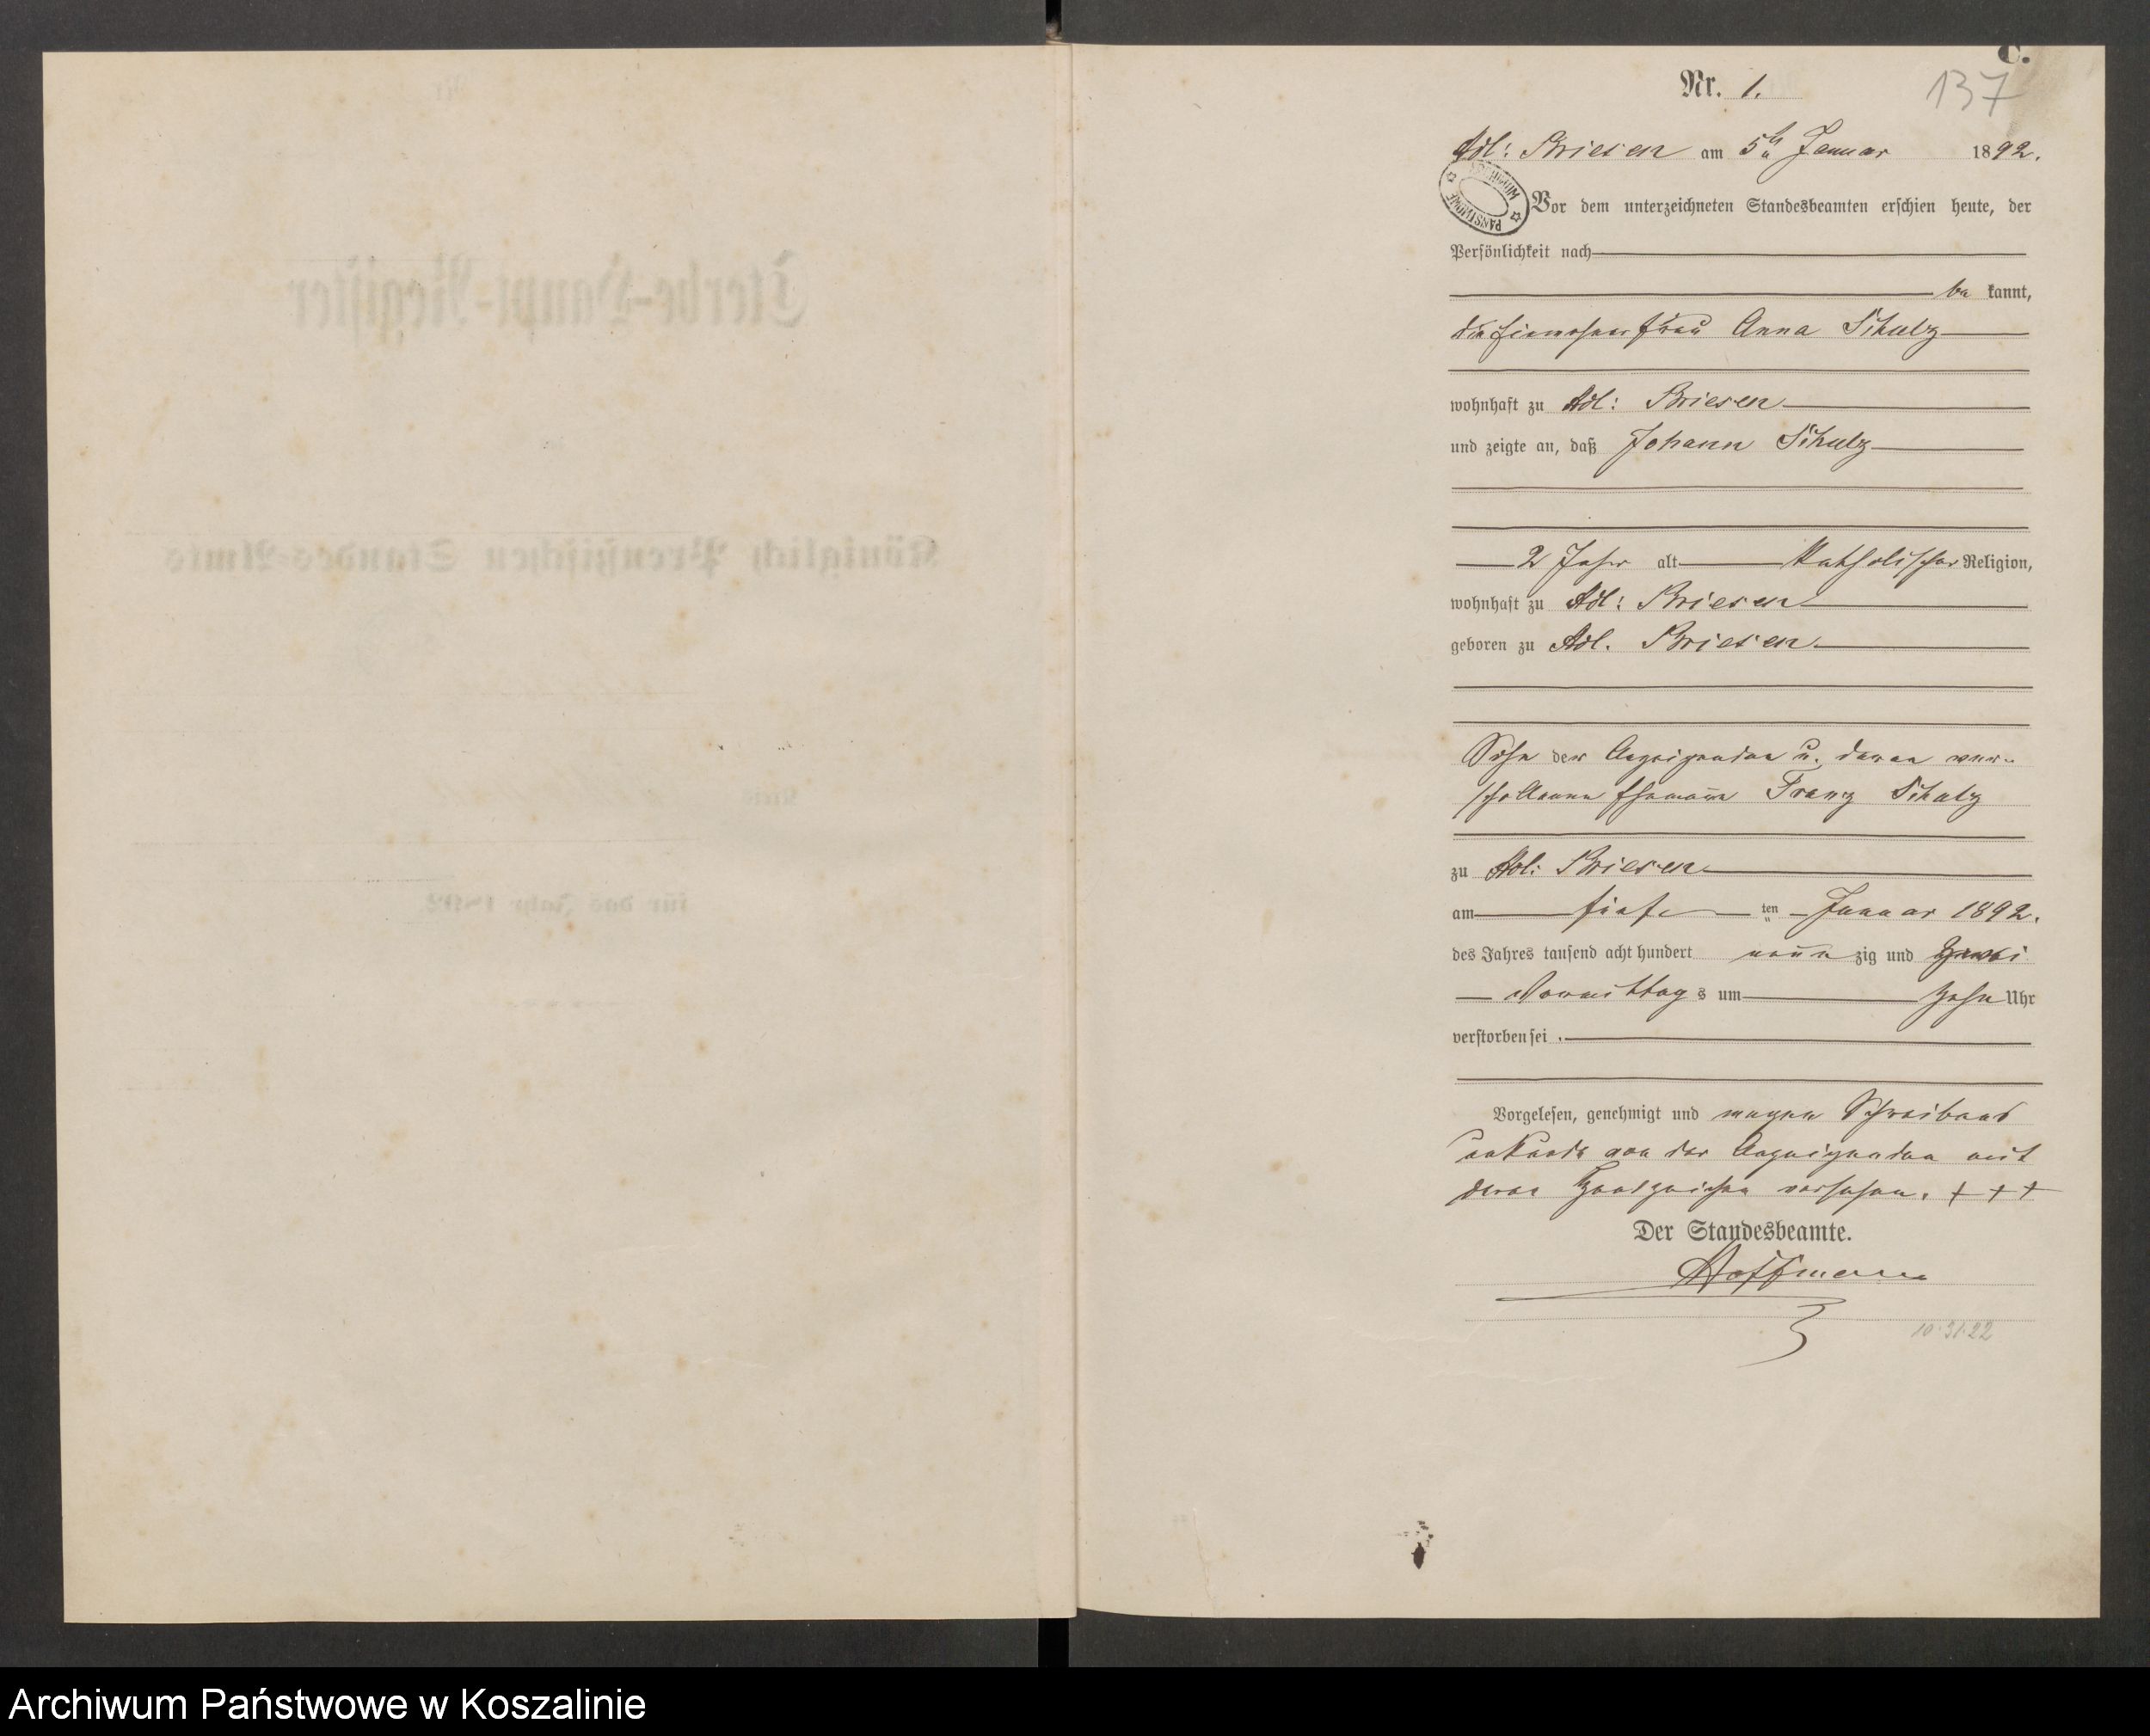 C.
Nr. 1.
137
Adl: Briesen am 5ten Januar 1892.
ARCHIWUM PAŃSTWOWE
Vor dem unterzeichneten Standesbeamten erschien heute, der
Persönlichkeit nach
be kannt,
die Einwohner Frau Anna Schulz
wohnhaft zu Adl: Briesen
und zeigte an, daß Johann Schulz
2 Jahr alt Katholischer Religion,
wohnhaft zu Adl: Briesen
geboren zu Adl. Briesen
Sohn der Anzeigenden u. deren ver-
schollenen Ehemann Franz Schulz
zu Adl: Briesen
am fünf ten Januar 1892.
des Jahres tausend acht hundert neun zig und zwei
Vormittag s um zehn Uhr
verstorben sei.
Vorgelesen, genehmigt und wegen Schreibens
unkunde von der Anzeigenden mit
deren Handzeichen versehen. + + +
Der Standesbeamte.
Hoffmann
10.31.22
Sterbe-Haupt-Register
Königlich Preußischen Standes-Amts
Kreis
für das Jahr 1892
Archiwum Państwowe w Koszalinie